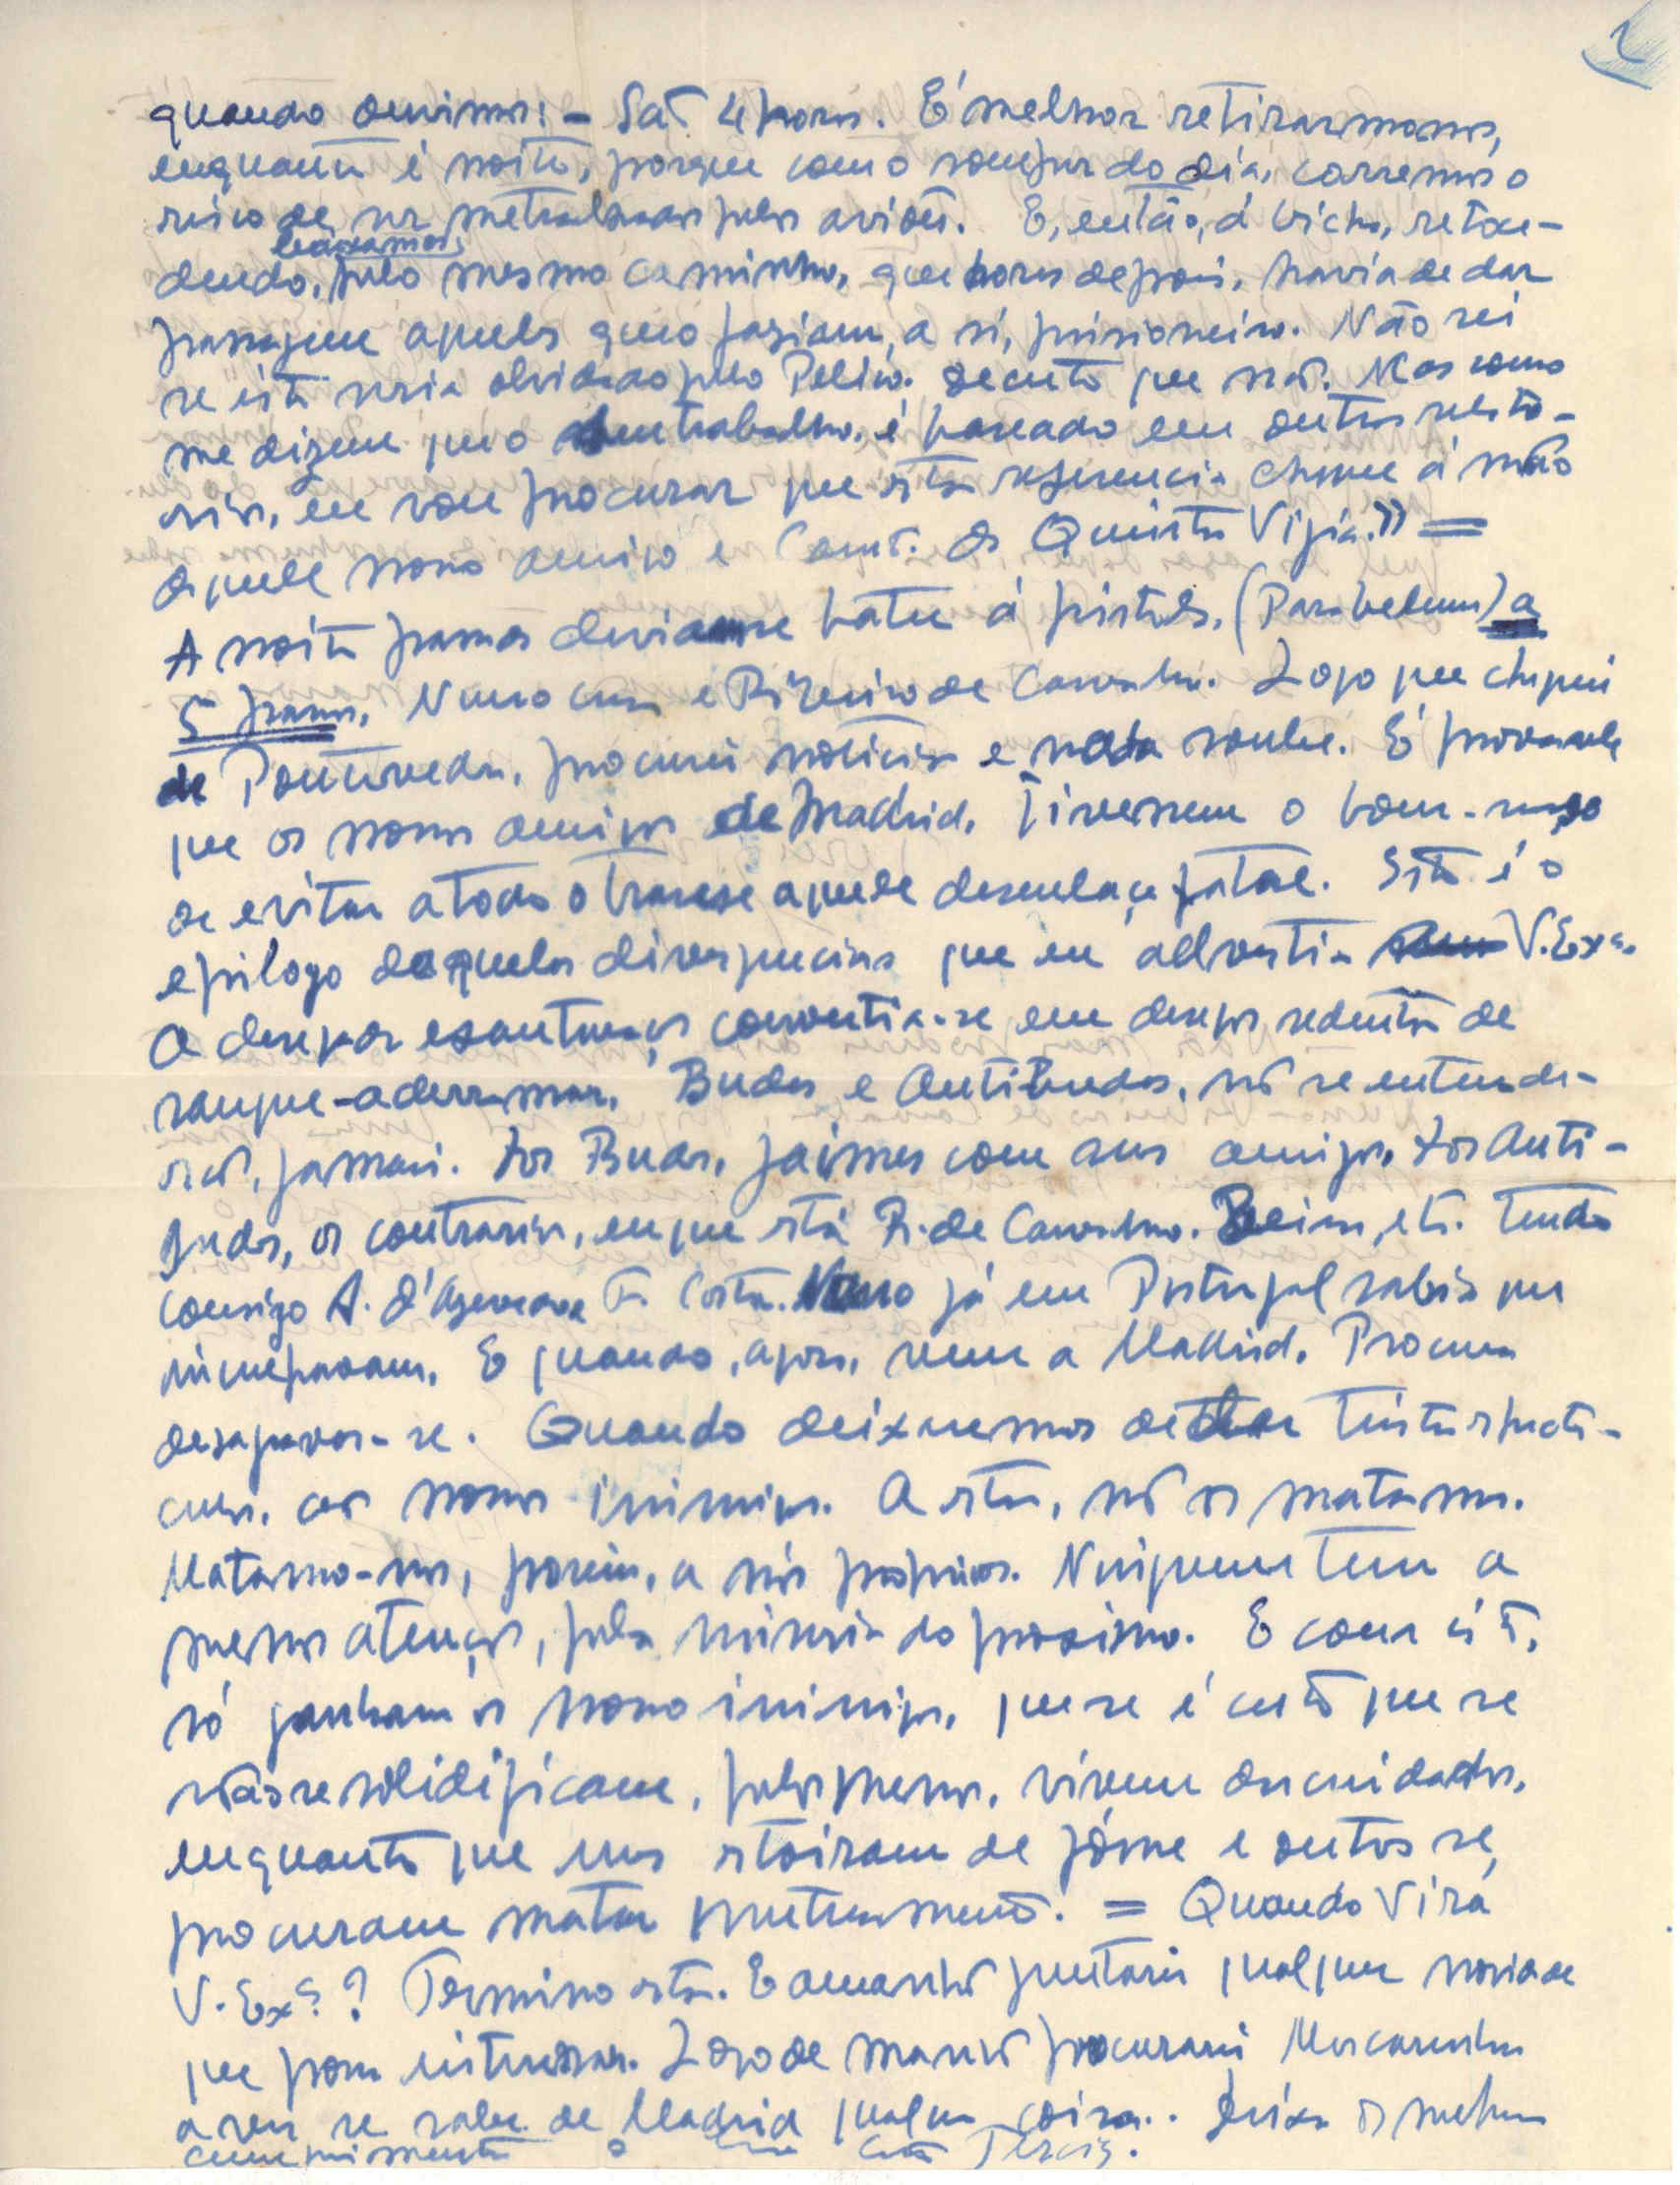 2
quando ouvimos: – Sat 4 horas. É melhor retirarmo-nos,
enquanto é noite, porque com o romper do dia, corremos o
risco de ser metralhados pelos aviões. E, então, á bicha, retroce-
deudo, pelo mesmo caminho, que horas depois, havia de dar
passagem aqueles que o faziam, a si, prisioneiro. Não sei
se isto seria olvidado pelo Pelico. decerto que não. Mas como
me dizem que o seu trabalho, é baseado em outros relato-
rios, eu vou procurar que esta referencia chegue á mão
daquele nosso amigo e Com. da Quinta Vigia." =
A noite passada deviam-se bater á pistola, (Parabelum) a
5 passos, Nuno Cruz e Ribeiro de Carvalho. Logo que cheguei
de Pontevedra, procurei noticias e nada soube. É provavel
que os nossos amigos de Madrid, tivessem o bom-senso
de evitar a todo o transe aquele desenlace fatal. Esta é o
epilogo daquelas divergencias que eu advertia V. Exª.
O desejar esantuaçs convertia-se em desejos sedentos de
sangue-a derramar. Budas e Antibudas, não se entende-
rão, jamais. Por Budas, Jaimes com seus amigos, Por Anti-
budas, os contrarios, em que está R. de Carvalho. etc. tendo
consigo A. d'Azevedo F. Costa. Nuno já em Portugal sabia que
E quando, agora, vem a Madrid. Procura
desagravar-se. Quando deixaremos de dar tristes espectá-
culos, aos nossos inimigos. A estes, não os matamos.
Matamo-nos, porém, a nós proprios. Ninguem tem a
menor atenção, pela miseria do proximo. E com isto,
só ganham os nossos inimigos, que se é certo que se
não se solidificam, pelo menos, vivem descuidados,
enquanto que uns estoiram de fóme e outros se,
procuram matar mutuamente. = Quando Virá
V. Exª.? Termino esta. E amanhã juntarei qualquer novidade
que possa interessar. Logo de manhã procurarei Mascarenhas
a ver se sabe de Madrid qualquer coisa.. os melhores